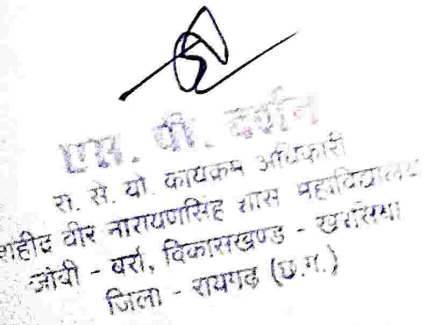 एस. पी. दर्शन
रा. से. यो. कार्यक्रम अधिकारी
शहीद वीर नारायणसिंह शास महाविद्यालय
जोबी - बर्रा, विकासखण्ड - खरसिया
जिला - रायगढ़ (छ.ग.)